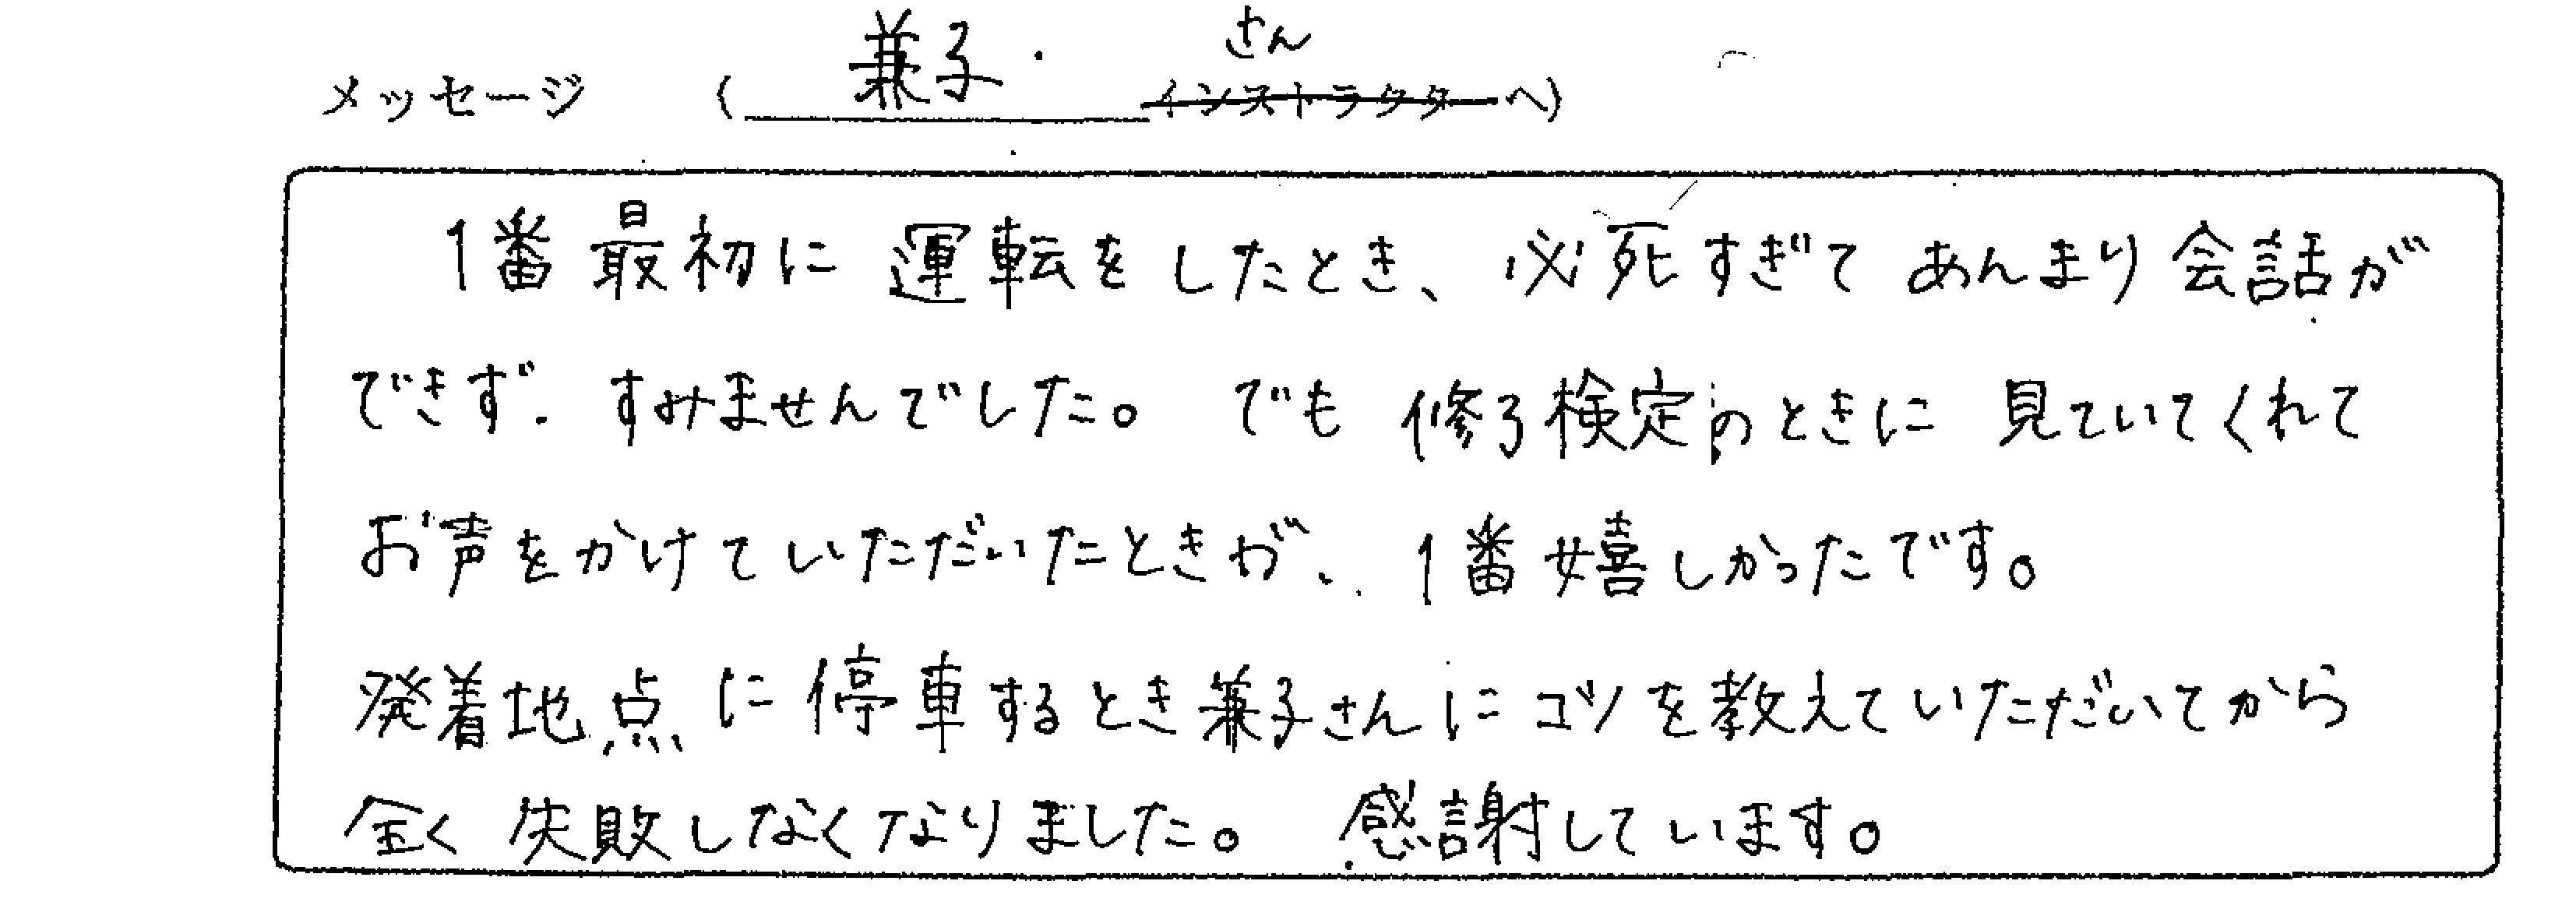 メッセージ　(兼子 さん インストラクターへ)
1番最初に運転をしたとき、必死すぎてあんまり会話が
できず、すみませんでした。でも修了検定のときに見ていてくれて
お声をかけていただいたときが、1番嬉しかったです。
発着地点に停車するとき兼子さんにコツを教えていただいてから
全く失敗しなくなりました。感謝しています。